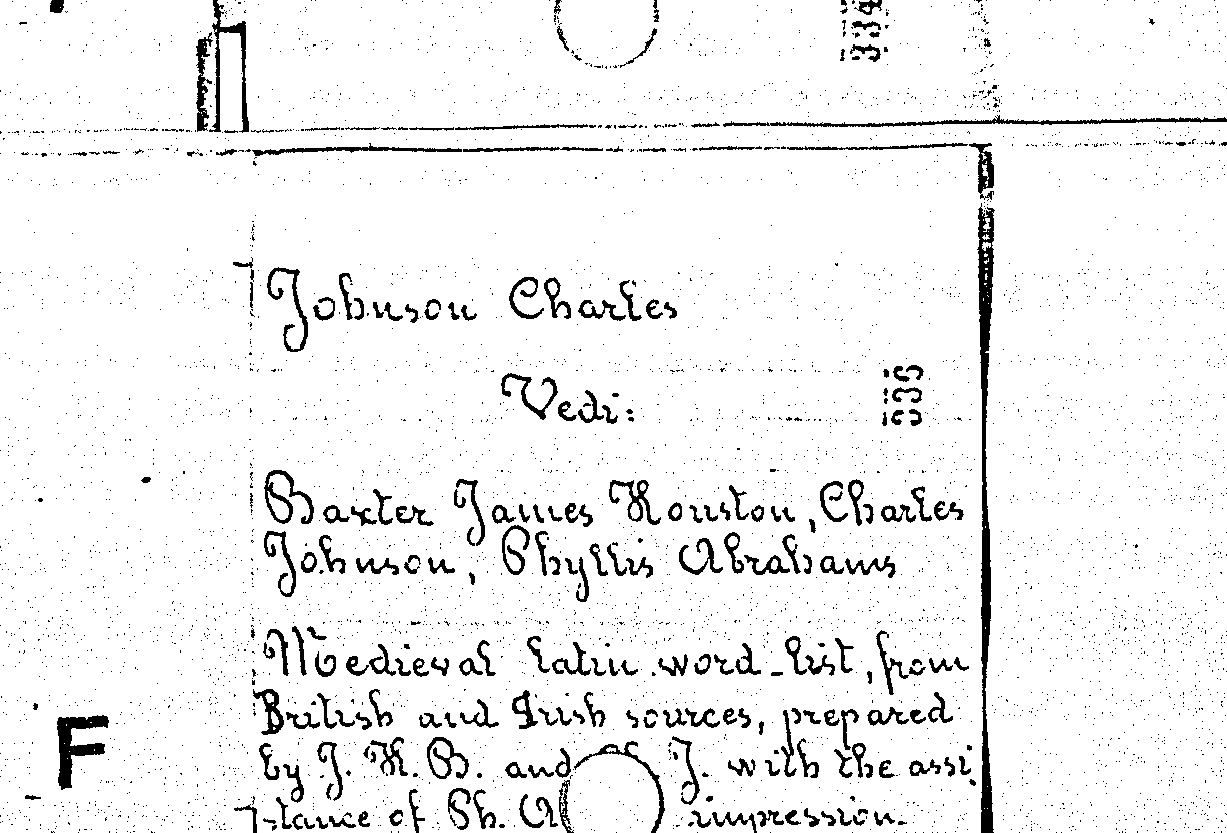 334
Johnson Charles
Vedi:
335
Baxter James Houston, Charles
Johnson, Phyllis Abrahams
Medieval latin word-list, from
British and Irish sources, prepared
F
by J. H. B. and Ch. J. with the assi
stance of Ph. A impression.